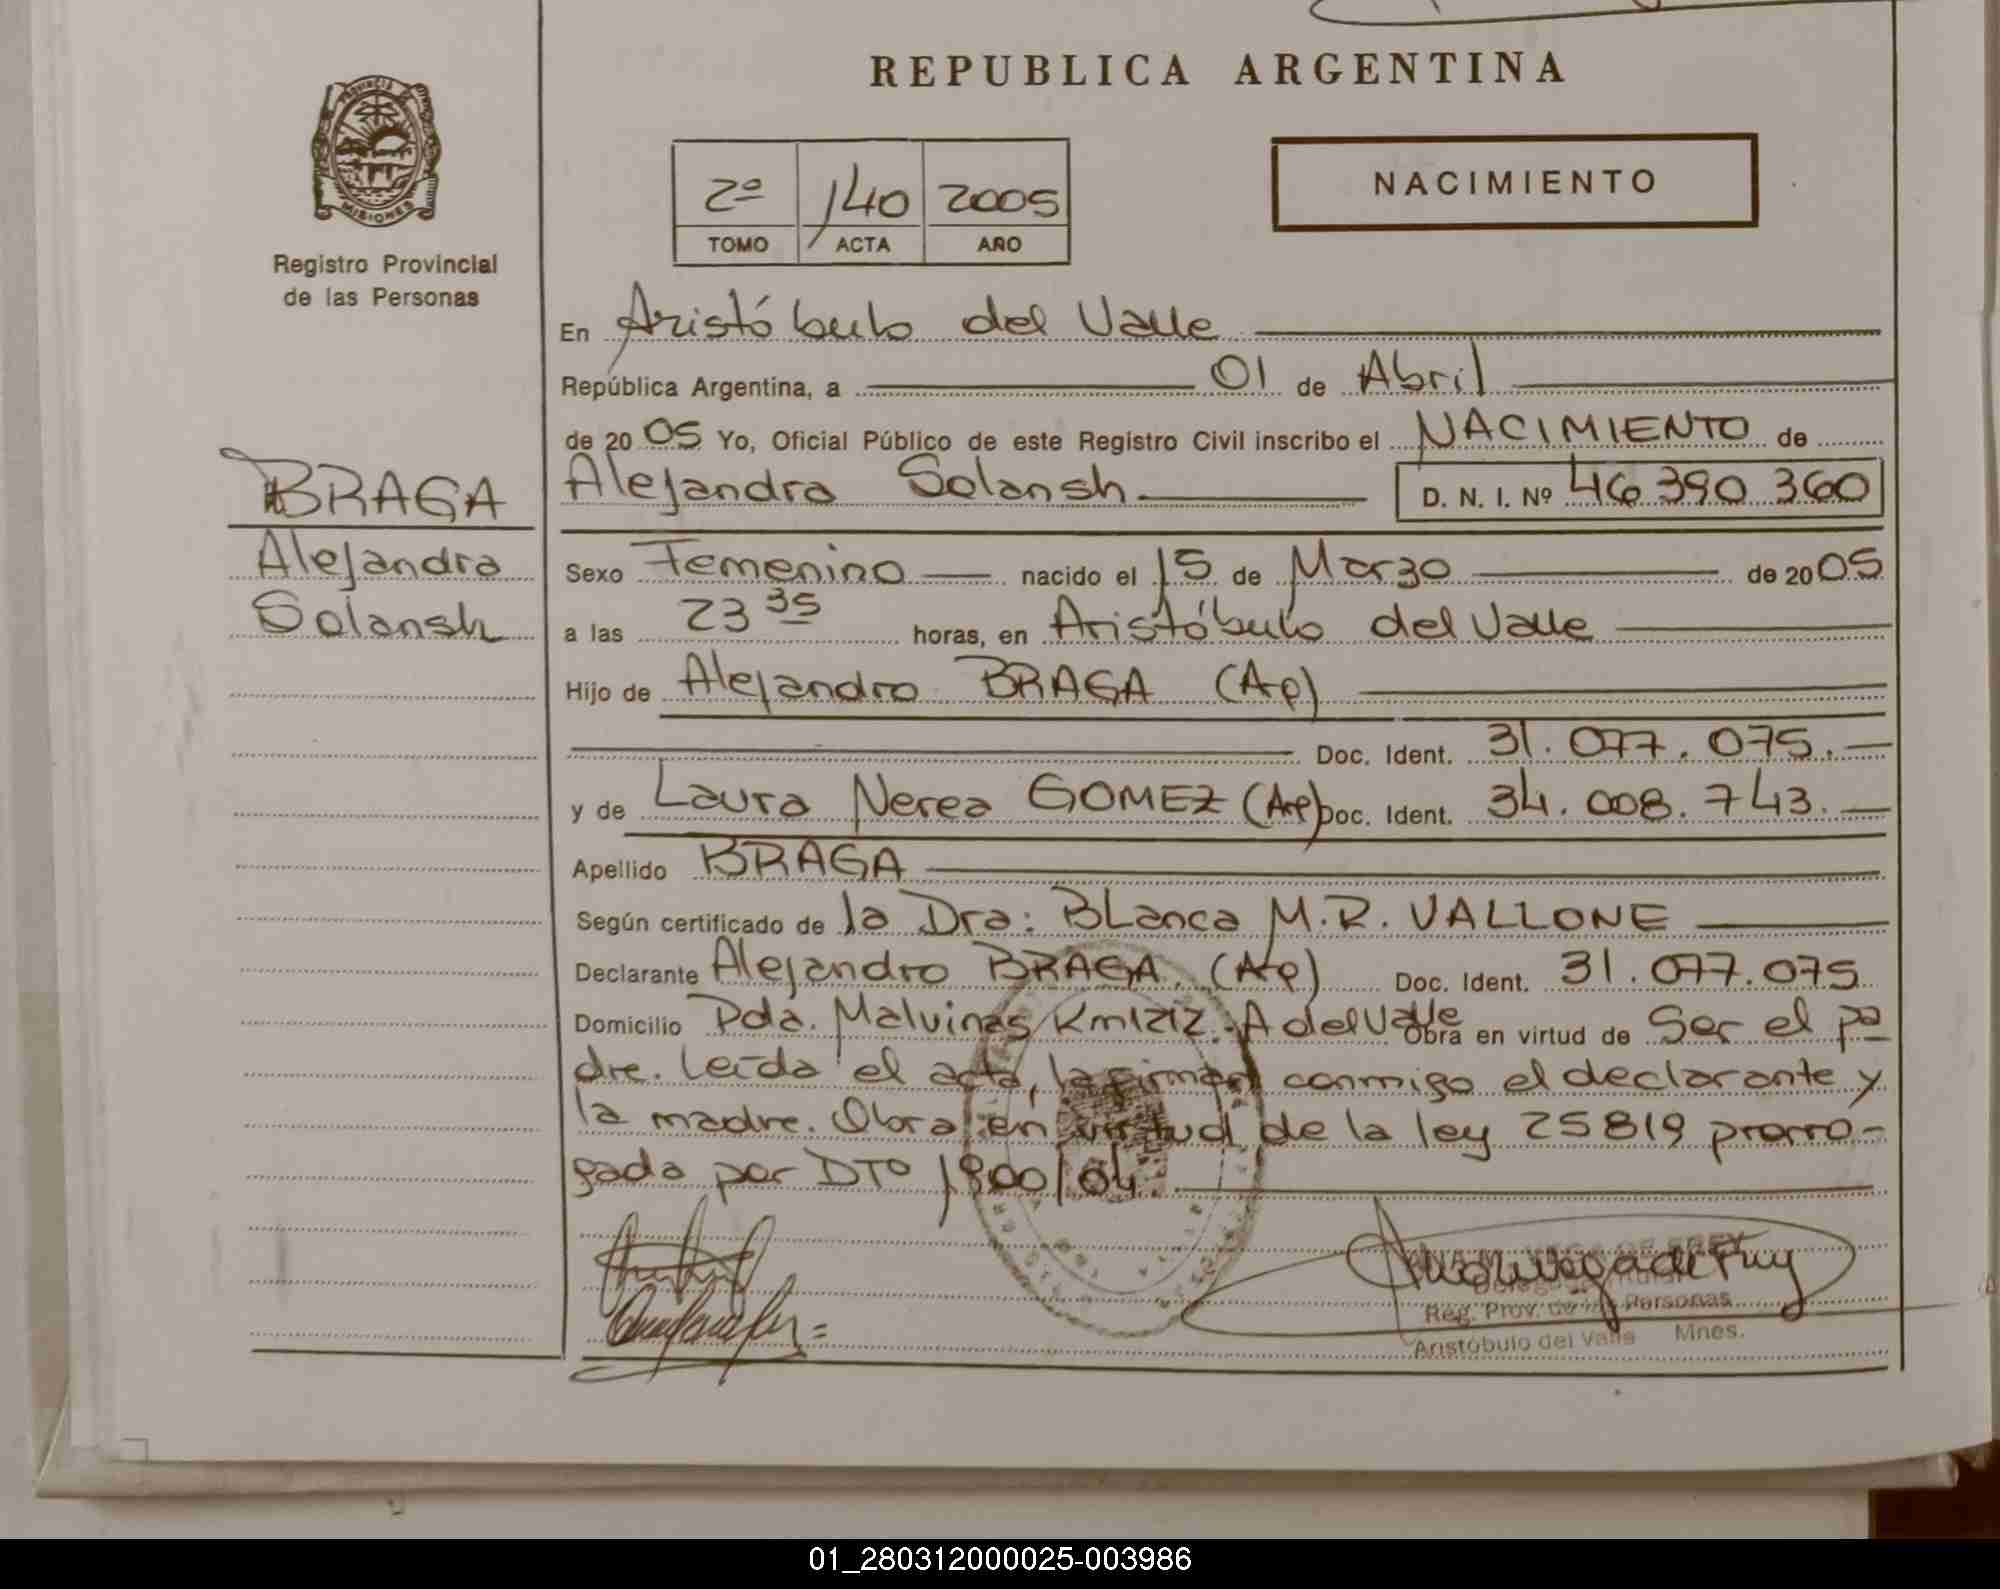 REPUBLICA ARGENTINA
PROVINCIA DE
MISIONES
Registro Provincial
de las Personas
2º 140 2005
TOMO ACTA AÑO
NACIMIENTO
En Aristóbulo del Valle
República Argentina, a 01 de Abril
de 2005 Yo, Oficial Público de este Registro Civil inscribo el NACIMIENTO de
Alejandra Solansh D. N. I. Nº 46 390 360
BRAGA
Alejandra
Solansh
Sexo Femenino nacido el 15 de Marzo de 2005
a las 23 35 horas, en Aristóbulo del Valle
Hijo de Alejandro BRAGA (Ap)
Doc. Ident. 31.077.075.
y de Laura Nerea GOMEZ (Ap) Doc. Ident. 34.008.743.
Apellido BRAGA
Según certificado de la Dra: Blanca M.R. VALLONE
Declarante Alejandro BRAGA. (Ap) Doc. Ident. 31.077.075
Domicilio Pda. Malvinas Km1212. A del Valle Obra en virtud de Ser el pa
dre. Leída el acta, la firman conmigo el declarante y
la madre. Obra en virtud de la ley 25819 prorro-
gada por DTO 1800/04.
VEGA DE FREY
Reg. Prov. de las Personas
Aristóbulo del Valle Mnes.
01_280312000025-003986